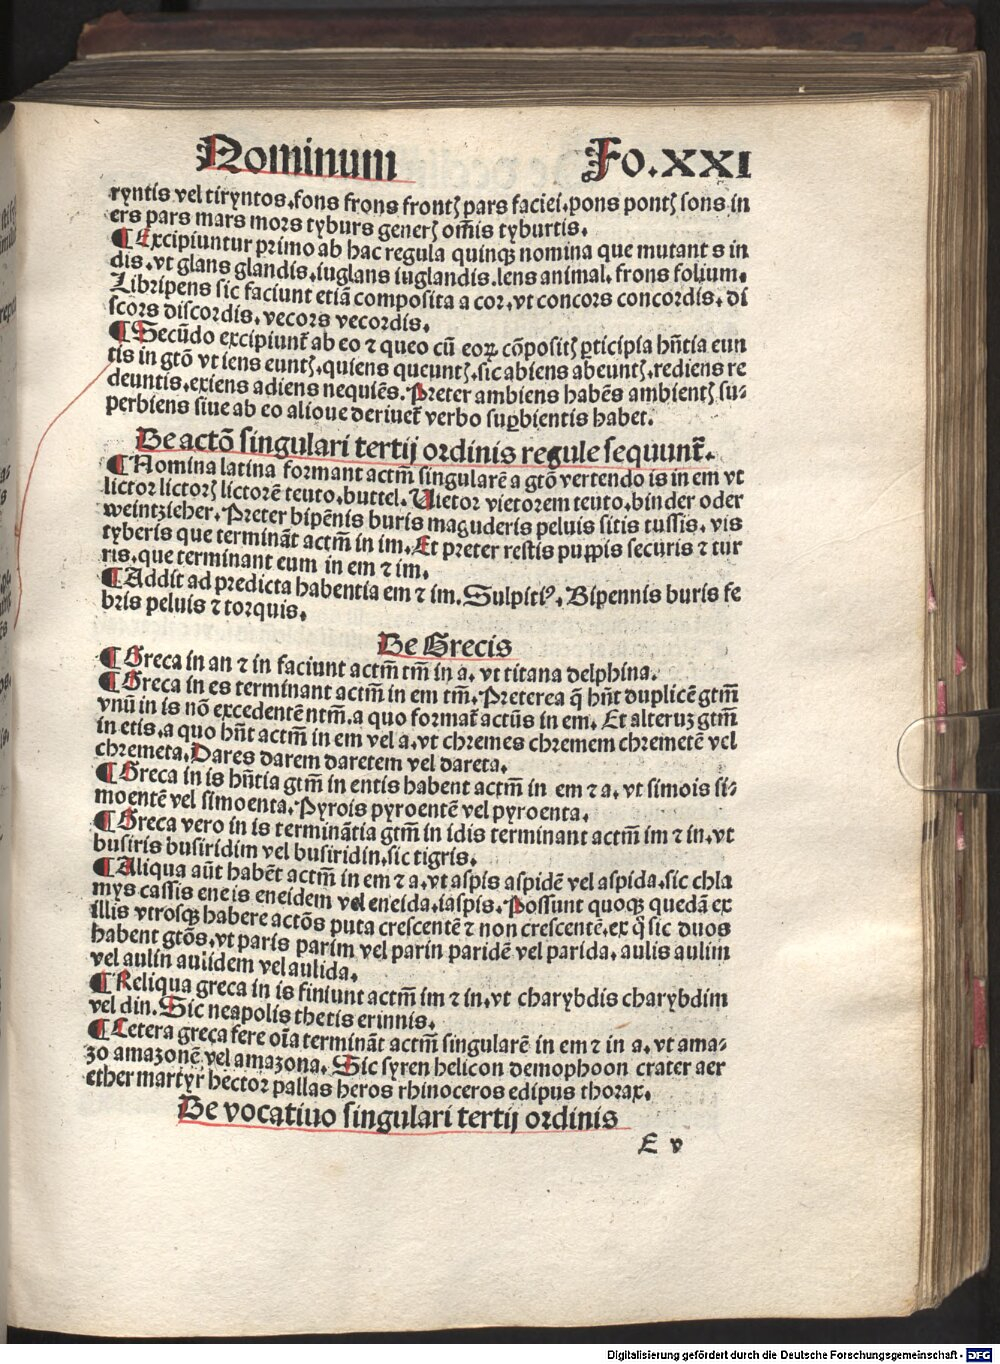 Nominum Fo.XXI
ryntis vel tiryntos.fons frons frontꝭ pars faciei.pons pontꝭ sons in
ers pars mars mors tyburs generꝭ om̄is tyburtis.
¶ Excipiuntur primo ab hac regula quinqꝫ nomina que mutant s in
dis.vt glans glandis.iuglans iuglandis.lens animal.frons folium.
Libripens sic faciunt etiā composita a cor.vt concors concordis.di
scors discordis.vecors vecordis.
¶ Secūdo excipiunt᷑ ab eo ⁊ queo cū eoꝝ cōpositꝭ ꝑticipia hn̄tia eun
tis in gtō vt iens euntꝭ.quiens queuntꝭ.sic abiens abeuntꝭ.rediens re
deuntis.exiens adiens nequiēs.Preter ambiens habēs ambientꝭ su⸗
perbiens siue ab eo alioue deriuet᷑ verbo suꝑbientis habet.
De actō singulari tertij ordinis regule sequunt᷑.
¶ Nomina latina formant actm̄ singularē a gtō vertendo is in em vt
lictor lictorꝭ lictorē teuto.buttel.Uietor vietorem teuto.binder oder
weintzieher.Preter bipēnis buris maguderis peluis sitis tussis.vis
tyberis que termināt actm̄ in im.Et preter restis puppis securis ⁊ tur
ris.que terminant eum in em ⁊ im.
¶ Addit ad predicta habentia em ⁊ im.Sulpitiꝰ.Bipennis buris fe
bris peluis ⁊ torquis.
De Grecis
¶ Greca in an ⁊ in faciunt actm̄ tm̄ in a.vt titana delphina.
¶ Greca in es terminant actm̄ in em tm̄.Preterea q̄ hn̄t duplicē gtm̄
vnū in is nō excedentē ntm̄.a quo format᷑ actūs in em. Et alteruꝫ gtm̄
in etis.a quo hn̄t actm̄ in em vel a.vt chremes chremem chremetē vel
chremeta.Dares darem daretem vel dareta.
¶ Greca in is hn̄tia gtm̄ in entis habent actm̄ in em ⁊ a.vt simois si⸗
moentē vel simoenta.Pyrois pyroentē vel pyroenta.
¶ Greca vero in is terminātia gtm̄ in idis terminant actm̄ im ⁊ in.vt
busiris busiridim vel busiridin.sic tigris.
¶ Aliqua aūt habēt actm̄ in em ⁊ a.vt aspis aspidē vel aspida.sic chla
mys cassis eneis eneidem vel eneida.iaspis.Possunt quoqꝫ quedā ex
illis vtrosqꝫ habere actōs puta crescentē ⁊ non crescentē.ex q̊ sic duos
habent gtōs.vt paris parim vel parin paridē vel parida.aulis aulim
vel aulin aulidem vel aulida.
¶ Reliqua greca in is finiunt actm̄ im ⁊ in.vt charybdis charybdim
vel din.Sic neapolis thetis erinnis.
¶ Cetera greca fere oīa termināt actm̄ singularē in em ⁊ in a.vt ama⸗
zo amazonē vel amazona. Sic syren helicon demophoon crater aer
ether martyr hector pallas heros rhinoceros edipus thorax.
De vocatiuo singulari tertij ordinis
E v
Digitalisierung gefördert durch die Deutsche Forschungsgemeinschaft - DFG